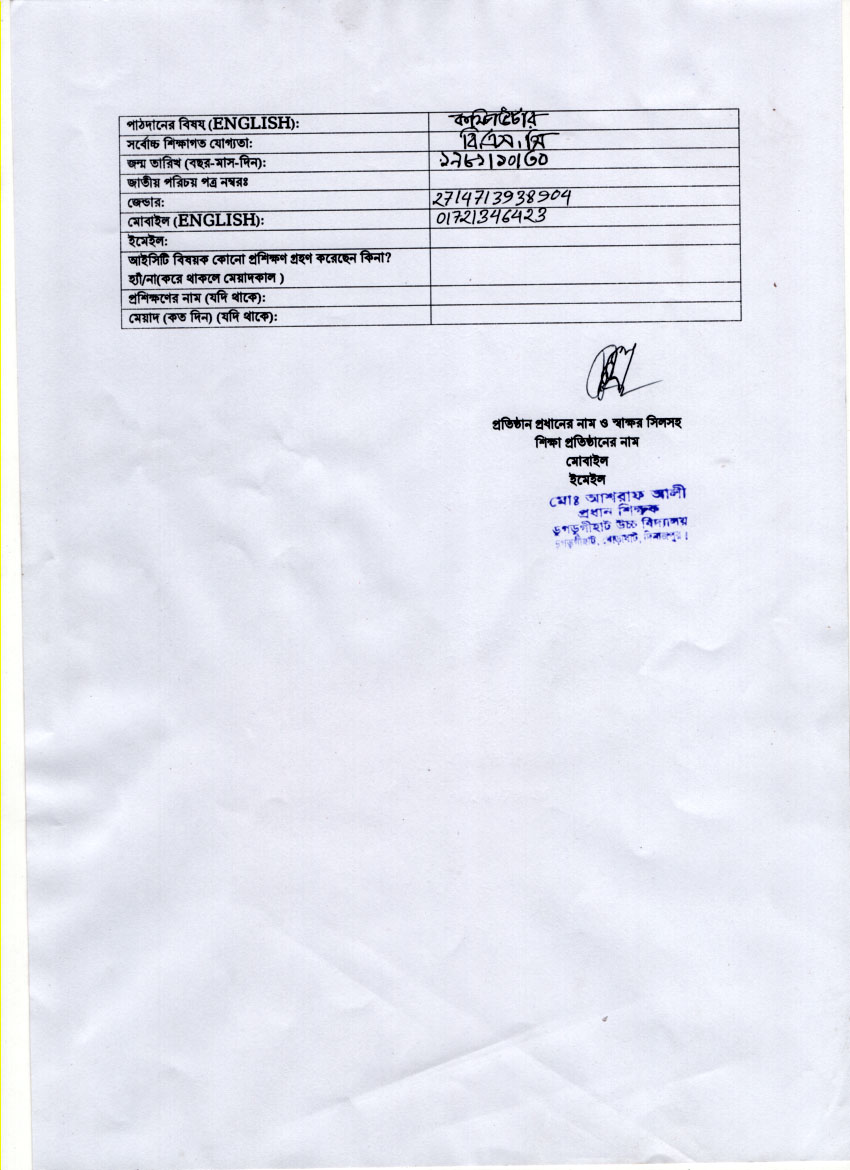 পাঠদানের বিষয় (ENGLISH): কম্পিউটার
সর্বোচ্চ শিক্ষাগত যোগ্যতা: বি.এস.সি
জন্ম তারিখ (বছর-মাস-দিন): ১৯৮১|১০|৩০
জাতীয় পরিচয় পত্র নম্বরঃ
জেন্ডার: 2714713938904
মোবাইল (ENGLISH): 01721346423
ইমেইল:
আইসিটি বিষয়ক কোনো প্রশিক্ষণ গ্রহণ করেছেন কিনা?
হ্যাঁ/না(করে থাকলে মেয়াদকাল )
প্রশিক্ষণের নাম (যদি থাকে):
মেয়াদ (কত দিন) (যদি থাকে):
প্রতিষ্ঠান প্রধানের নাম ও স্বাক্ষর সিলসহ
শিক্ষা প্রতিষ্ঠানের নাম
মোবাইল
ইমেইল
মোঃ আশরাফ আলী
প্রধান শিক্ষক
ডুগডুগীহাট উচ্চ বিদ্যালয়
ডুগডুগীহাট, ঘোড়াঘাট, দিনাজপুর।